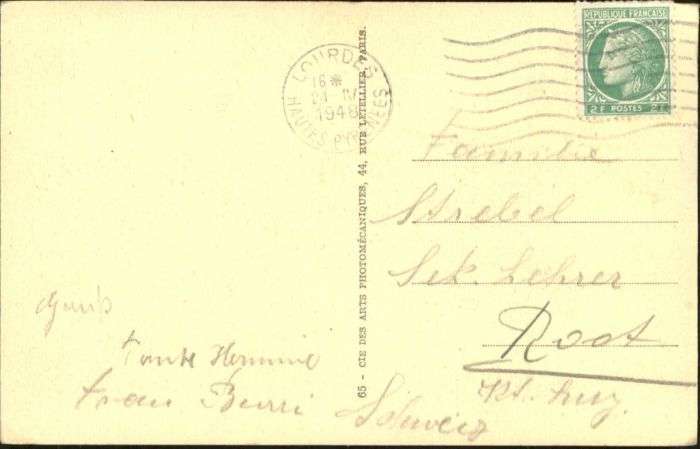 LOURDES
16 *
21 IV
1948
HAUTES PYRENÉES
REPUBLIQUE FRANÇAISE
2F POSTES 2F
65 - CIE DES ARTS PHOTOMÉCANIQUES, 44, RUE LETELLIER, PARIS.
Familie
Strebel
Sek. Lehrer
Root
Kt. Luz.
Schweiz
Gruß
Tante Hermine
Frau Burri